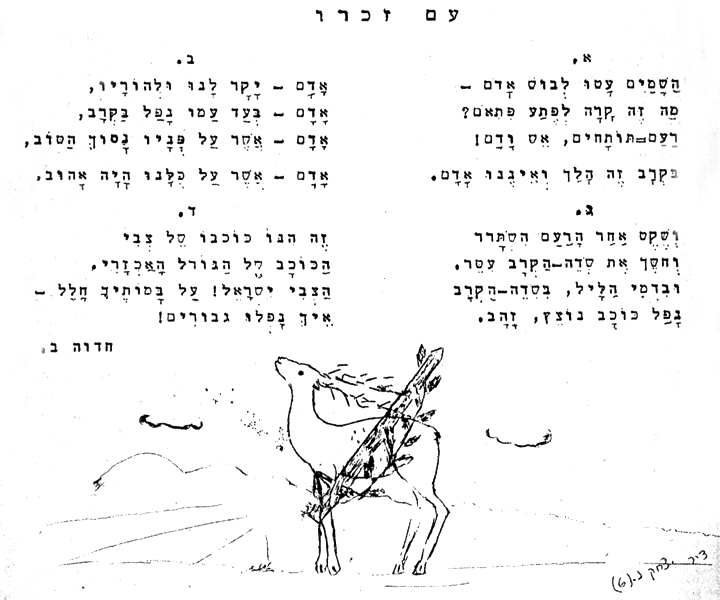 עם זכרו
א.
הַשָּׁמַיִם עָטוּ לְבוּשׁ אָדֹם –
מַה זֶה קָרָה לְפֶתַע פִּתְאֹם?
רַעַם=תּוֹתָחִים, אֵשׁ וָדָם!
בַּקְרָב זֶה הָלַךְ וְאֵינֶנּוּ אָדָם.
ב.
אָדָם – יָקָר לָנוּ וּלְהוֹרָיו,
אָדָם – בְּעַד עַמּוֹ נָפַל בַּקְרָב,
אָדָם – אֲשֶׁר עַל פָּנָיו נָסוּךְ הַטּוֹב,
אָדָם – אֲשֶׁר עַל כֻּלָּנוּ הָיָה אָהוּב.
ג.
וְשֶׁקֶט אַחַר הָרַעַם הִשְׂתָּרֵר
וְחֹשֶׁךְ אֶת שְׂדֵה-הַקְּרָב עִטֵּר.
וּבִדְמִי הַלַּיִל, בִּשְׂדֵה-הַקְּרָב
נָפַל כּוֹכָב נוֹצֵץ, זָהָב.
ד.
זֶה הִנּוֹ כּוֹכָבוֹ שֶׁל צְבִי
הַכּוֹכָב שֶׁל הַגּוֹרָל הָאַכְזָרִי.
הַצְּבִי יִשְׂרָאֵל! עַל בָּמוֹתֶיךָ חָלָל –
אֵיךְ נָפְלוּ גִּבּוֹרִים!
חדוה ב.
יצחק נ. (6)